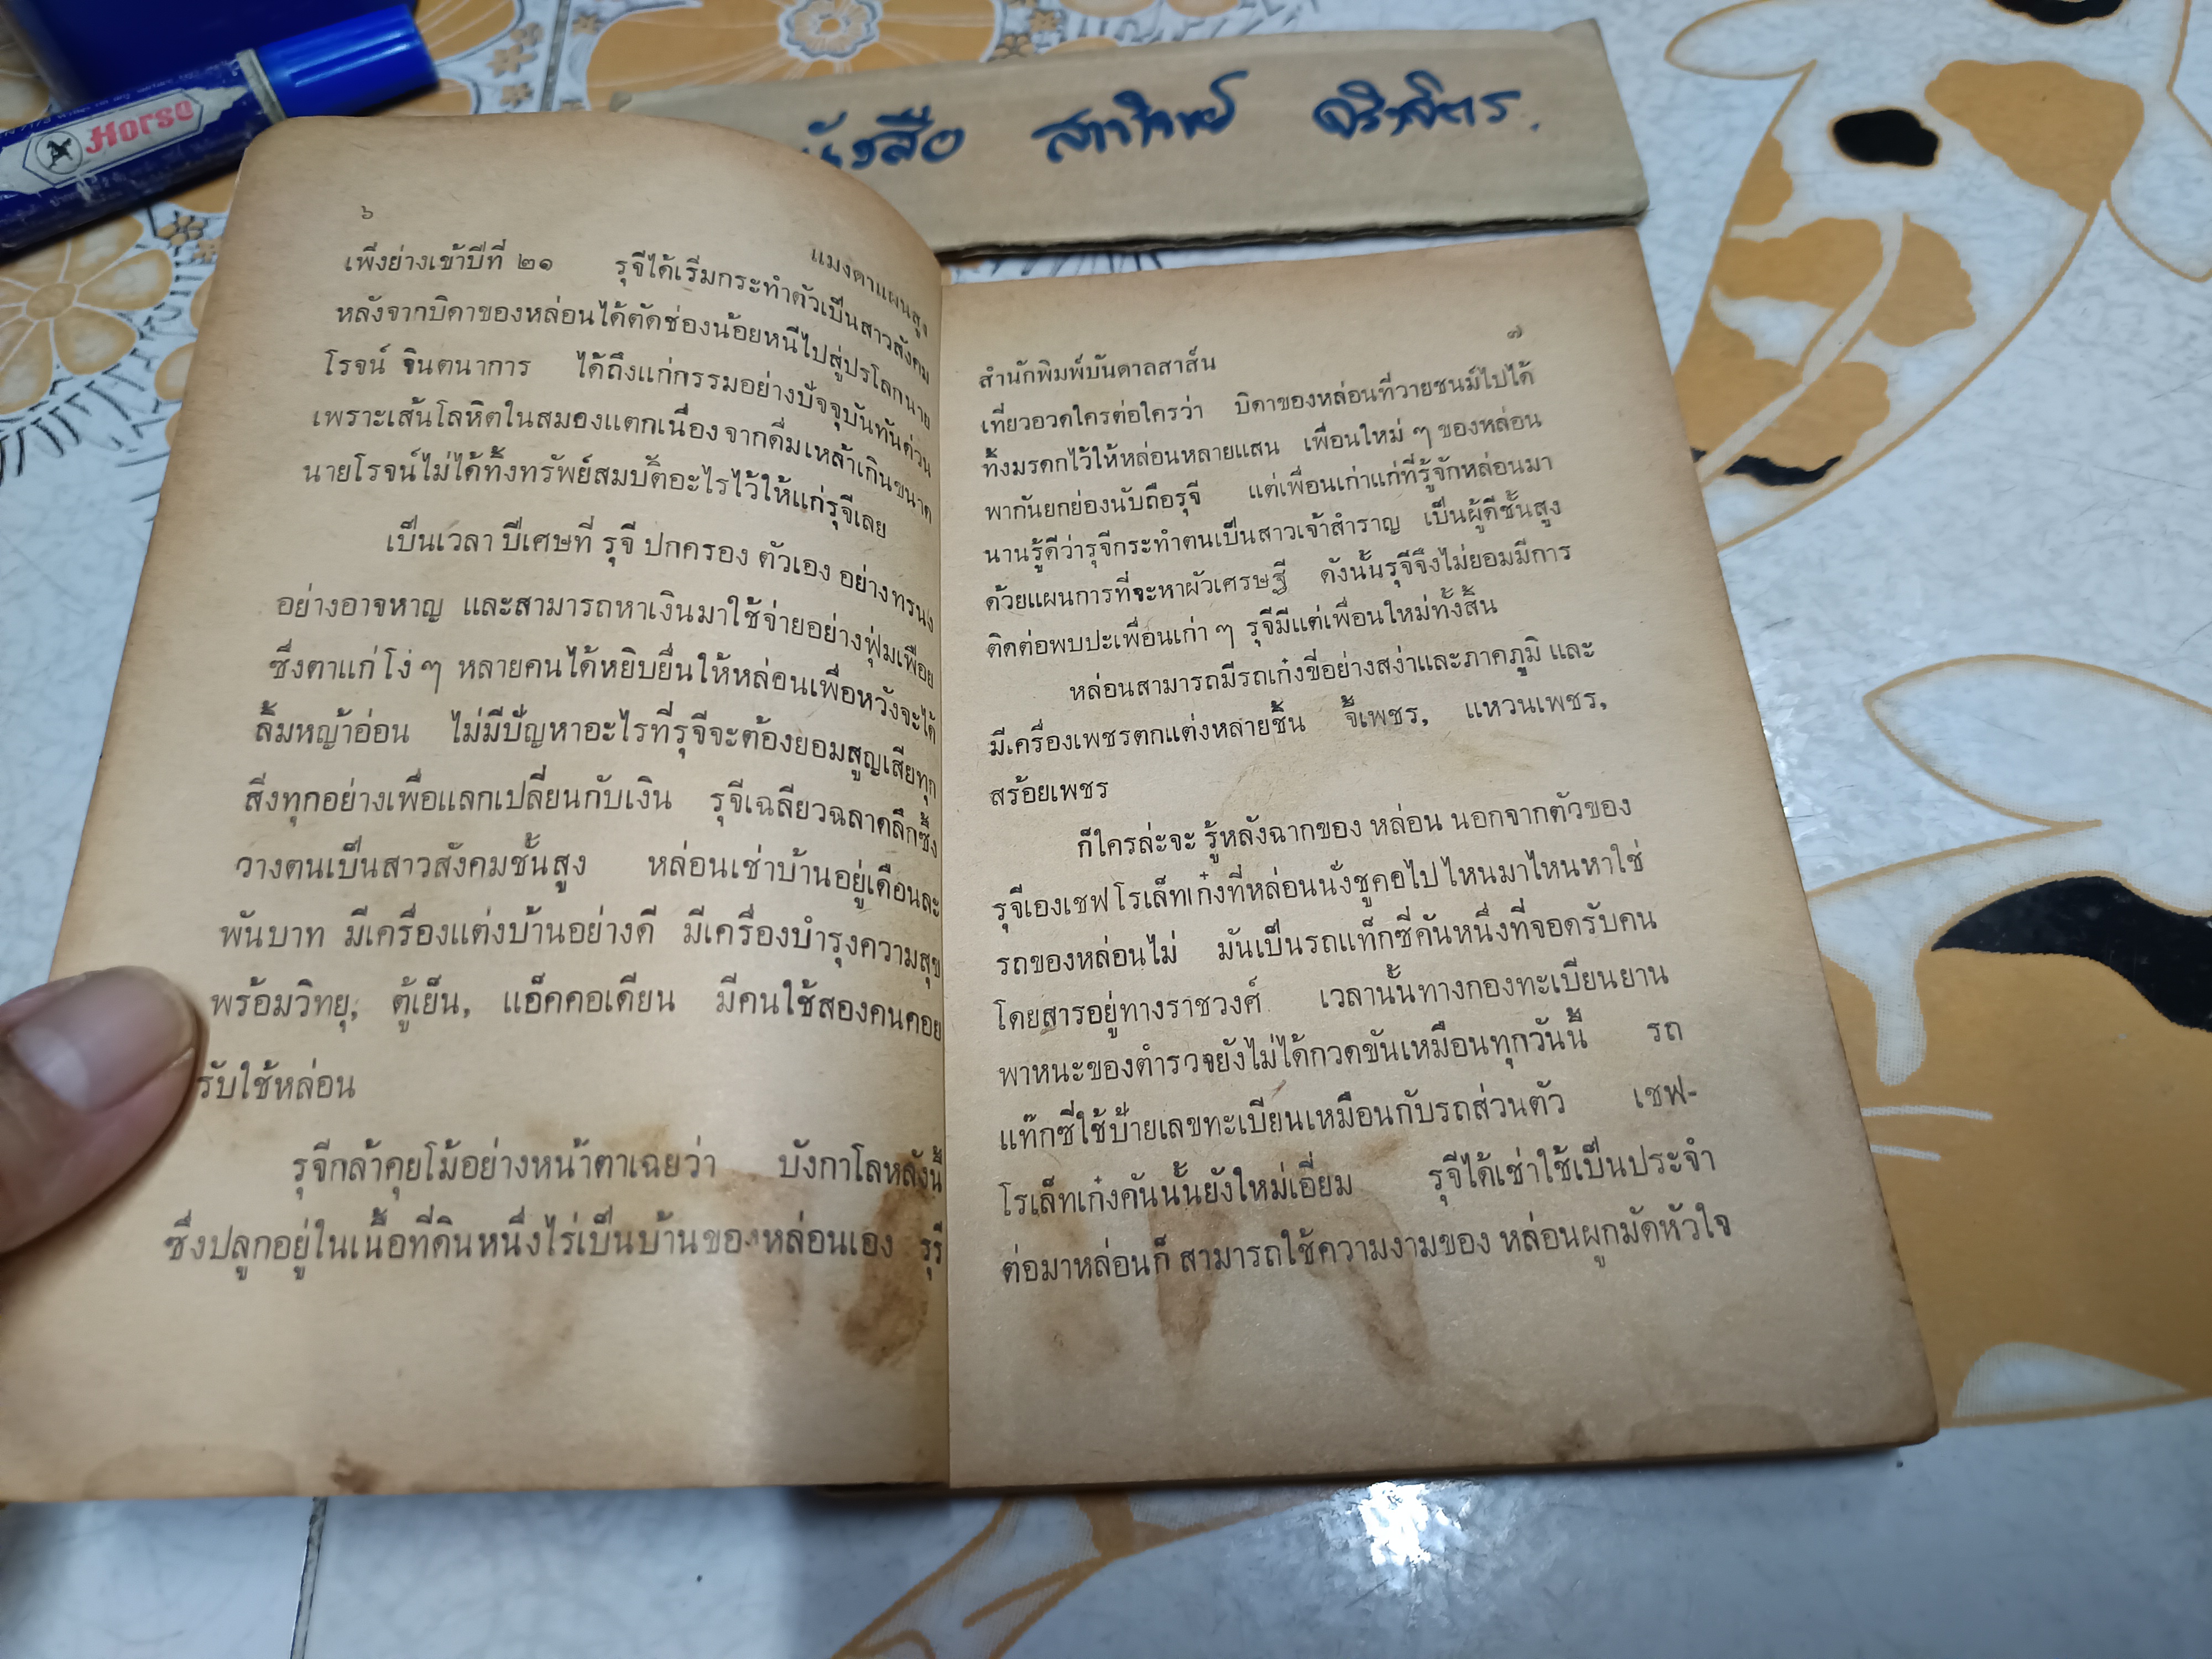 Horse
ังสือ สาวิทย์ จริงจิตร.
๖
แมงดาแผนสูง
เพิ่งย่างเข้าปีที่ ๒๑ รุจีได้เริ่มกระทำตัวเป็นสาวสังคม
หลังจากบิดาของหล่อนได้ตัดช่องน้อยหนีไปสู่ปรโลกนาย
โรจน์ จินตนาการ ได้ถึงแก่กรรมอย่างปัจจุบันทันด่วน
เพราะเส้นโลหิตในสมองแตกเนื่อง จากดื่มเหล้าเกินขนาด
นายโรจน์ไม่ได้ทิ้งทรัพย์สมบัติอะไรไว้ให้แก่รุจีเลย
เป็นเวลา ปีเศษที่ รุจี ปกครอง ตัวเอง อย่างทรนง
อย่างอาจหาญ และสามารถหาเงินมาใช้จ่ายอย่างฟุ่มเฟือย
ซึ่งตาแก่โง่ ๆ หลายคนได้หยิบยื่นให้หล่อนเพื่อหวังจะได้
ลิ้มหญ้าอ่อน ไม่มีปัญหาอะไรที่รุจีจะต้องยอมสูญเสียทุก
สิ่งทุกอย่างเพื่อแลกเปลี่ยนกับเงิน รุจีเฉลียวฉลาดลึกซึ้ง
วางตนเป็นสาวสังคมชั้นสูง หล่อนเช่าบ้านอยู่เดือนละ
พันบาท มีเครื่องแต่งบ้านอย่างดี มีเครื่องบำรุงความสุข
พร้อมวิทยุ, ตู้เย็น, แอ็คคอเดียน มีคนใช้สองคนคอย
รับใช้หล่อน
รุจีกล้าคุยโม้อย่างหน้าตาเฉยว่า บังกาโลหลังนี้
ซึ่งปลูกอยู่ในเนื้อที่ดินหนึ่งไร่เป็นบ้านของหล่อนเอง รุรี
๗
สำนักพิมพ์บันดาลสาส์น
เที่ยวอวดใครต่อใครว่า บิดาของหล่อนที่วายชนม์ไปได้
ทิ้งมรดกไว้ให้หล่อนหลายแสน เพื่อนใหม่ ๆ ของหล่อน
พากันยกย่องนับถือรุจี แต่เพื่อนเก่าแก่ที่รู้จักหล่อนมา
นานรู้ดีว่ารุจีกระทำตนเป็นสาวเจ้าสำราญ เป็นผู้ดีชั้นสูง
ด้วยแผนการที่จะหาผัวเศรษฐี ดังนั้นรุจีจึงไม่ยอมมีการ
ติดต่อพบปะเพื่อนเก่า ๆ รุจีมีแต่เพื่อนใหม่ทั้งสิ้น
หล่อนสามารถมีรถเก๋งขี่อย่างสง่าและภาคภูมิ และ
มีเครื่องเพชรตกแต่งหลายชิ้น จี้เพชร, แหวนเพชร,
สร้อยเพชร
ก็ใครล่ะจะ รู้หลังฉากของ หล่อน นอกจากตัวของ
รุจีเองเชฟโรเล็ทเก๋งที่หล่อนนั่งชูคอไปไหนมาไหนหาใช่
รถของหล่อนไม่ มันเป็นรถแท็กซี่คันหนึ่งที่จอดรับคน
โดยสารอยู่ทางราชวงศ์ เวลานั้นทางกองทะเบียนยาน
พาหนะของตำรวจยังไม่ได้กวดขันเหมือนทุกวันนี้ รถ
แท๊กซี่ใช้ป้ายเลขทะเบียนเหมือนกับรถส่วนตัว เชฟ-
โรเล็ทเก๋งคันนั้นยังใหม่เอี่ยม รุจีได้เช่าใช้เป็นประจำ
ต่อมาหล่อนก็ สามารถใช้ความงามของ หล่อนผูกมัดหัวใจ